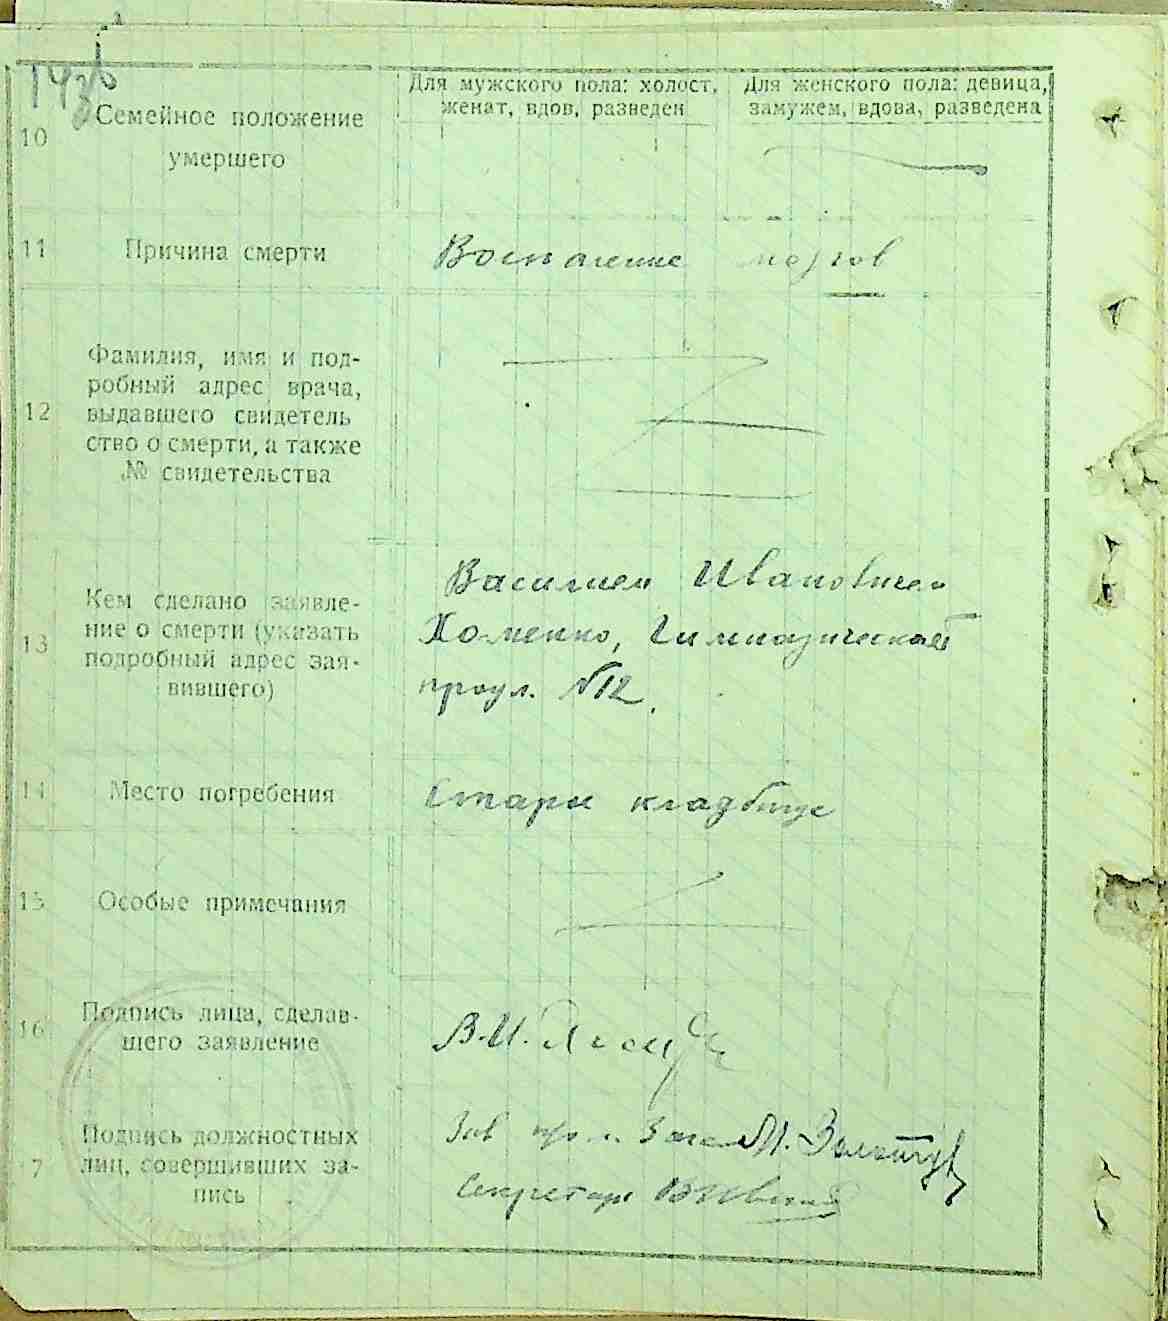 1436
Для мужского пола: холост, женат, вдов, разведен
Для женского пола: девица, замужем, вдова, разведена
10
Семейное положение
умершего
11
Причина смерти
Воспаление мозгов
12
Фамилия, имя и под-
робный адрес врача,
выдавшего свидетель
ство о смерти, а также
№ свидетельства
13
Кем сделано заявле-
ние о смерти (указать
подробный адрес зая-
вившего)
Василием Ивановичем
Хоменко, Гимназический
проул. №12.
14
Место погребения
Старе кладбище
15
Особые примечания
16
Подпись лица, сделав-
шего заявление
В.И.
17
Подпись должностных
лиц, совершивших за-
пись
Зав
Секретарь